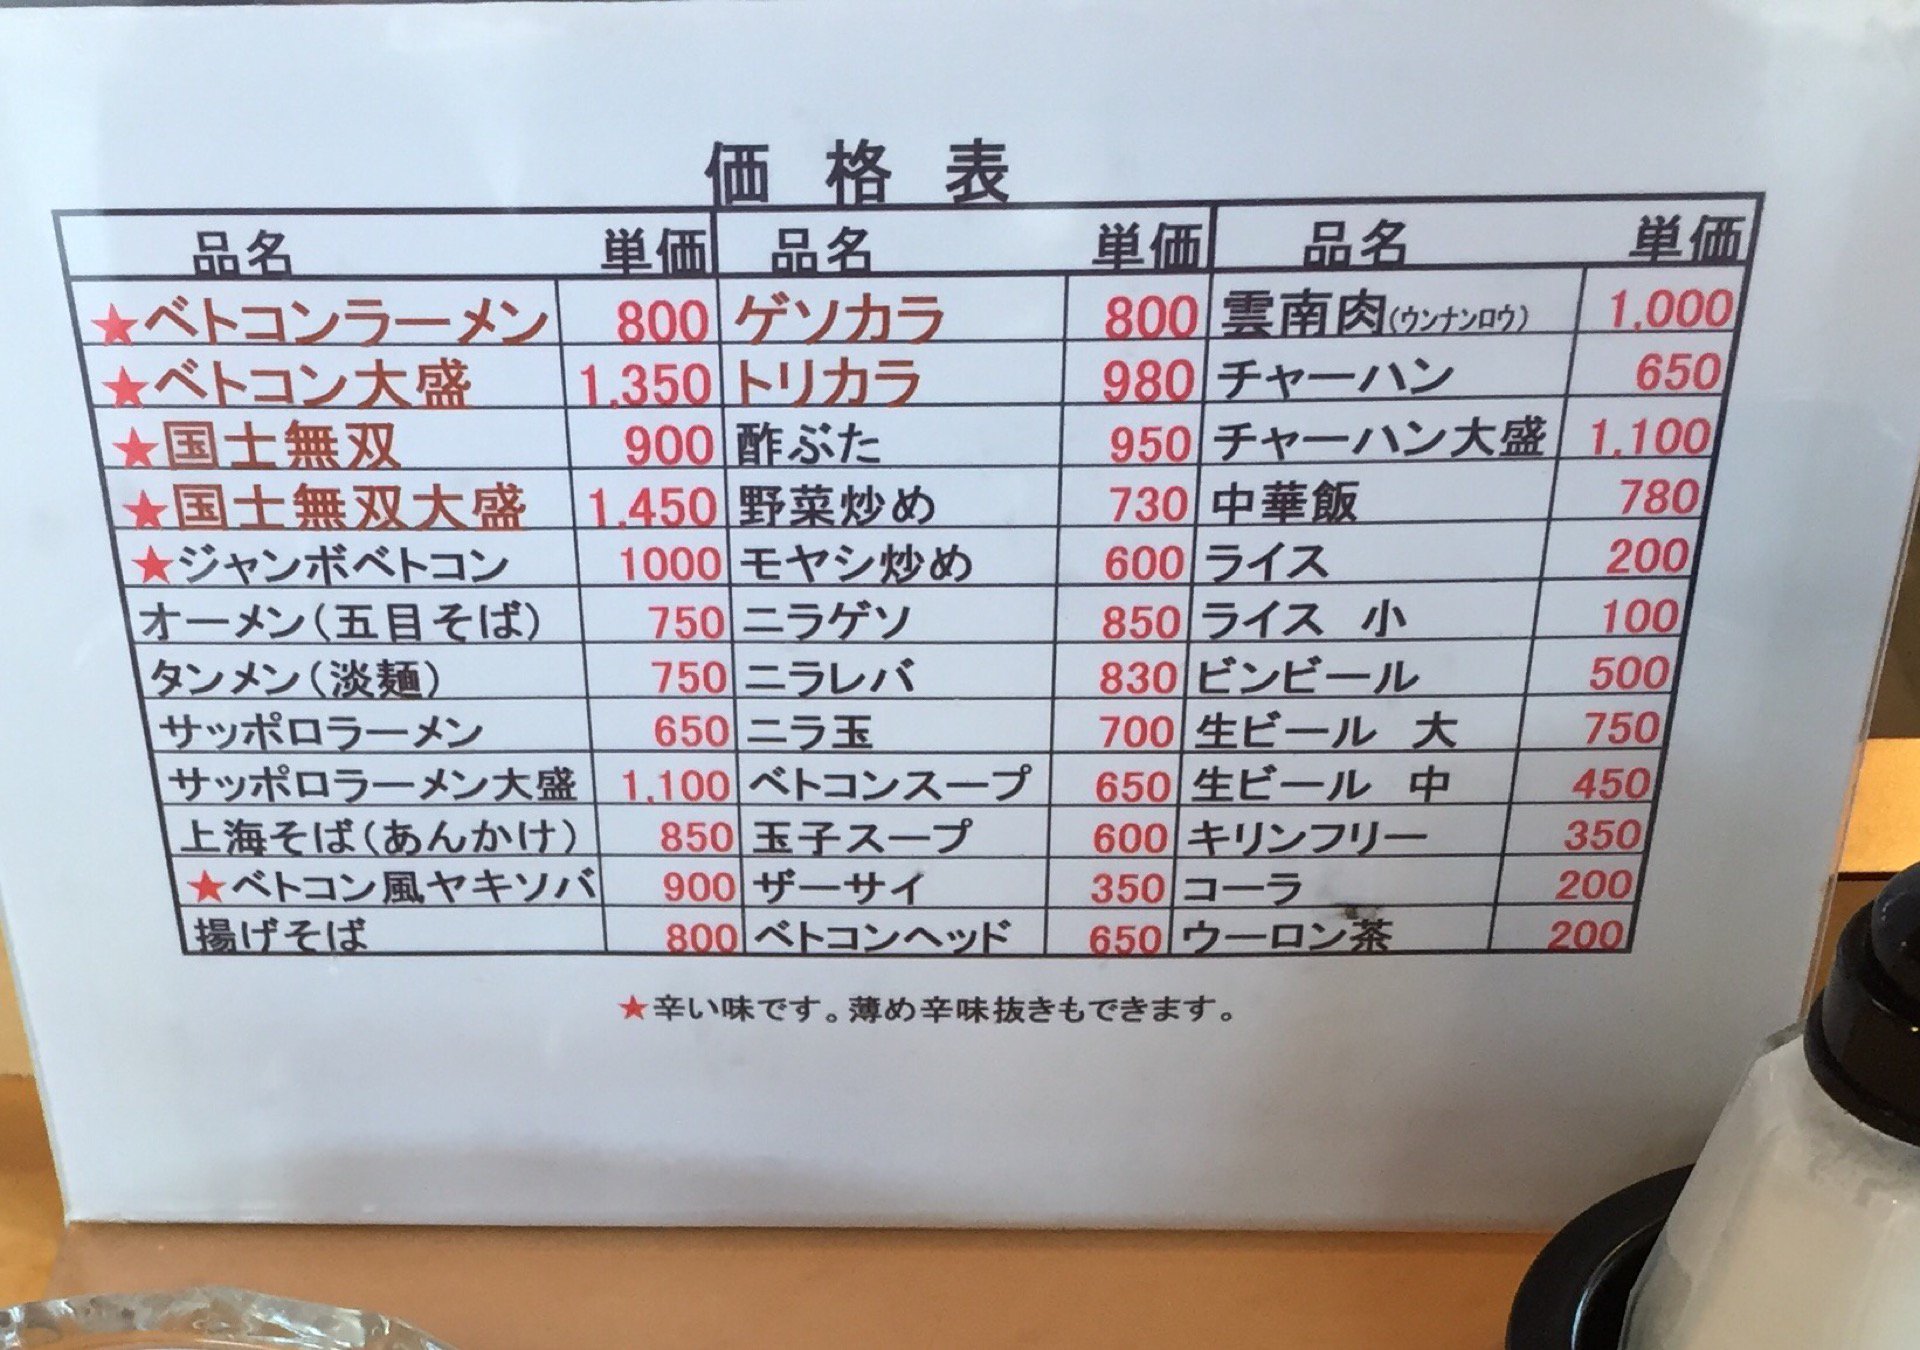 価格表
品名 単価 品名 単価 品名 単価
★ベトコンラーメン 800 ゲソカラ 800 雲南肉(ウンナンロウ) 1,000
★ベトコン大盛 1,350 トリカラ 980 チャーハン 650
★国士無双 900 酢ぶた 950 チャーハン大盛 1,100
★国士無双大盛 1,450 野菜炒め 730 中華飯 780
★ジャンボベトコン 1000 モヤシ炒め 600 ライス 200
オーメン(五目そば) 750 ニラゲソ 850 ライス 小 100
タンメン(淡麺) 750 ニラレバ 830 ビンビール 500
サッポロラーメン 650 ニラ玉 700 生ビール 大 750
サッポロラーメン大盛 1,100 ベトコンスープ 650 生ビール 中 450
上海そば(あんかけ) 850 玉子スープ 600 キリンフリー 350
★ベトコン風ヤキソバ 900 ザーサイ 350 コーラ 200
揚げそば 800 ベトコンヘッド 650 ウーロン茶 200
★辛い味です。薄め辛味抜きもできます。